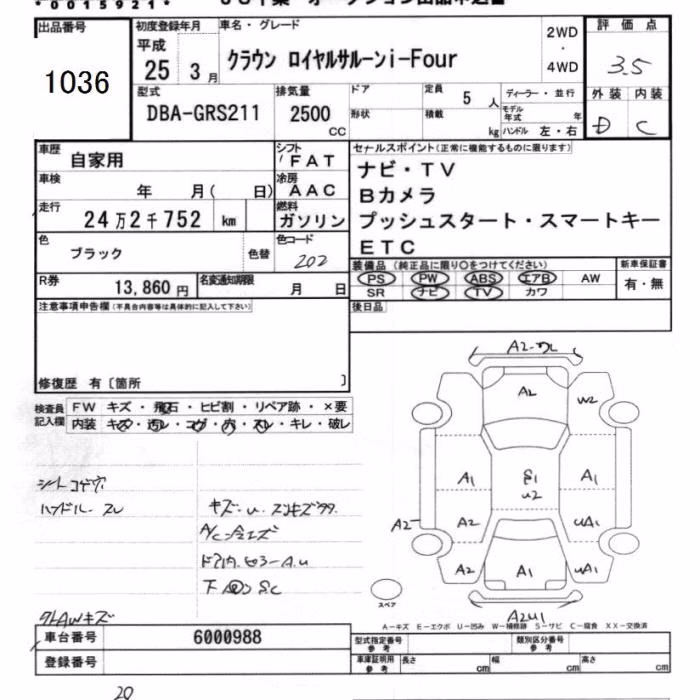 *0015921*
出品番号
1036
初度登録年月
平成
25 3月
車名・グレード
クラウン ロイヤルサルーンi-Four
2WD
・
4WD
評価点
3.5
外装 内装
D C
型式
DBA-GRS211
排気量
2500
CC
ドア
形状
定員
5 人
積載
kg
ディーラー・並行
モデル年式 年
ハンドル 左・右
車歴
自家用
シフト
FAT
車検
年 月( 日)
冷房
AAC
走行
24万2千752 km
燃料
ガソリン
色
ブラック
色替
色コード
202
R券
13,860円
名変通知期限
月 日
セールスポイント(正常に機能するものに限ります)
ナビ・TV
Bカメラ
プッシュスタート・スマートキー
ETC
装備品(純正品に限り○をつけてください)
PS PW ABS エアB AW
SR ナビ TV カワ
新車保証書
有・無
後日品
注意事項申告欄(不具合内容等は具体的に記入して下さい)
修復歴 有〔箇所 〕
検査員
記入欄
FW キズ・飛石・ヒビ割・リペア跡・×要
内装 キズ・汚レ・コゲ・穴・スレ・キレ・破レ
シートコゲ穴
ハンドル スレ
A2
W2
A1
S1
U2
A1
A2
A2
UA1
A2
A1
UA1
A2U1
スペア
A－キズ E－エクボ U－凹み W－補修跡 S－サビ C－腐食 XX－交換済
車台番号
6000988
登録番号
型式指定番号
参考
類別区分番号
参考
車庫証明用
参考
長さ cm
幅 cm
高さ cm
20